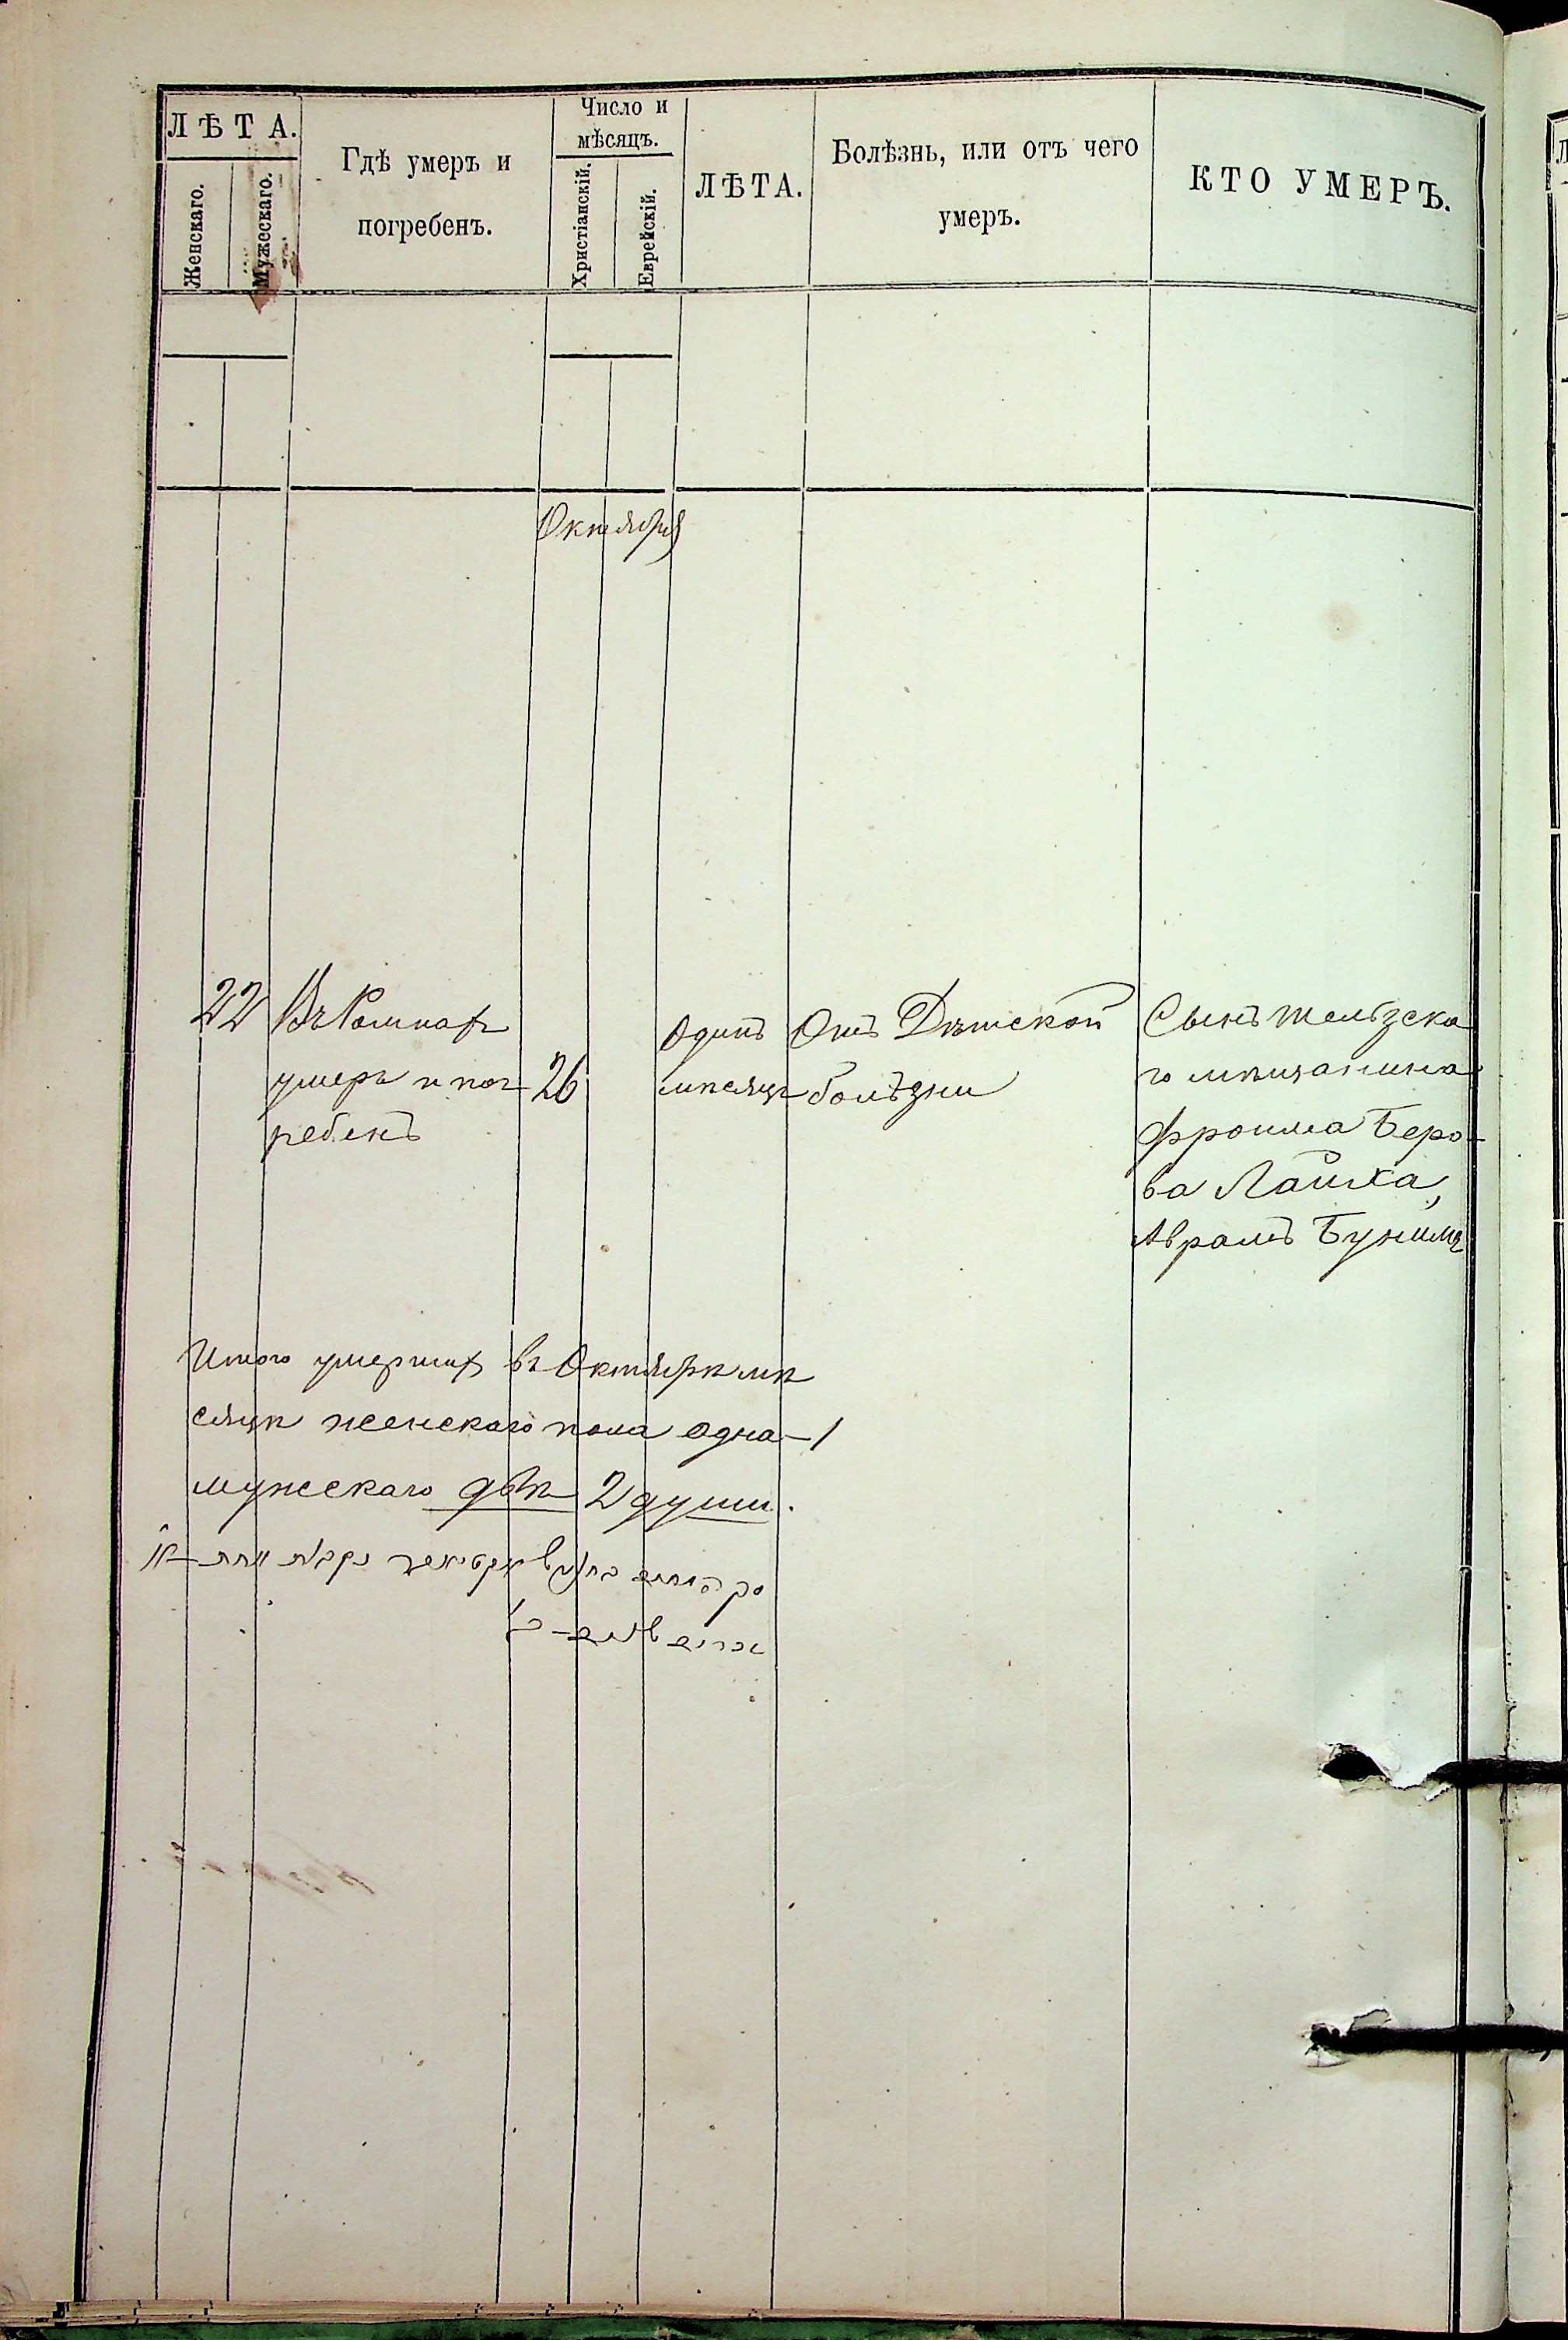 ЛѢТА.
Женскаго.
Мужескаго.
Гдѣ умеръ и
погребенъ.
Число и
мѣсяцъ.
Христіанскій.
Еврейскій.
ЛѢТА.
Болѣзнь, или отъ чего
умеръ.
КТО УМЕРЪ.
Октября
22
Въ Ромнахъ
умеръ и пог-
ребенъ
26
Одинъ
мѣсяцъ
Отъ Дѣтской
болѣзни
Сынъ
го мѣщанина
Фроима Беро-
ва Лайха,
Аврамъ Бунимъ
Итого умершихъ въ Октябрѣ мѣ
сяцѣ женскаго пола одна – 1
мужескаго двѣ 2 души.